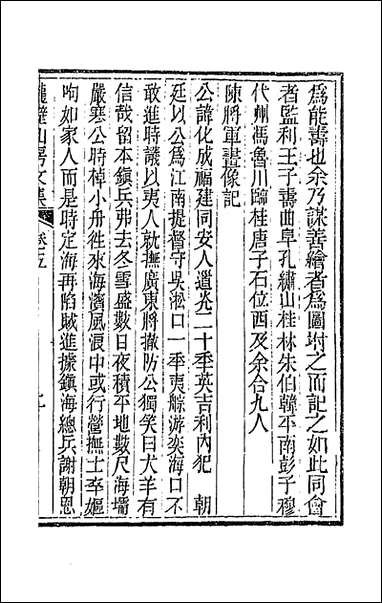 為能壽也余乃謀善繪者為圖坿之而記之如此同會
者監利王子壽曲阜孔繡山桂林朱伯韓平南彭子穆
代州馮魯川臨桂唐子石位西及余合九人
陳將軍畫像記
公諱化成福建同安人道光二十季英吉利內犯 朝
廷以公為江南提督守吳淞口一季夷艅游奕海口不
敢進時議以夷人就撫廣東將撤防公獨笑曰犬羊有
信哉留本鎮兵弗去冬雪盛數日夜積平地數尺海壖
嚴寒公時棹小舟徃來海濤風浪中或行營撫士卒嫗
呴如家人而是時定海再陷賊進據鎮海總兵謝朝恩
龍壁山房文集 卷五 九